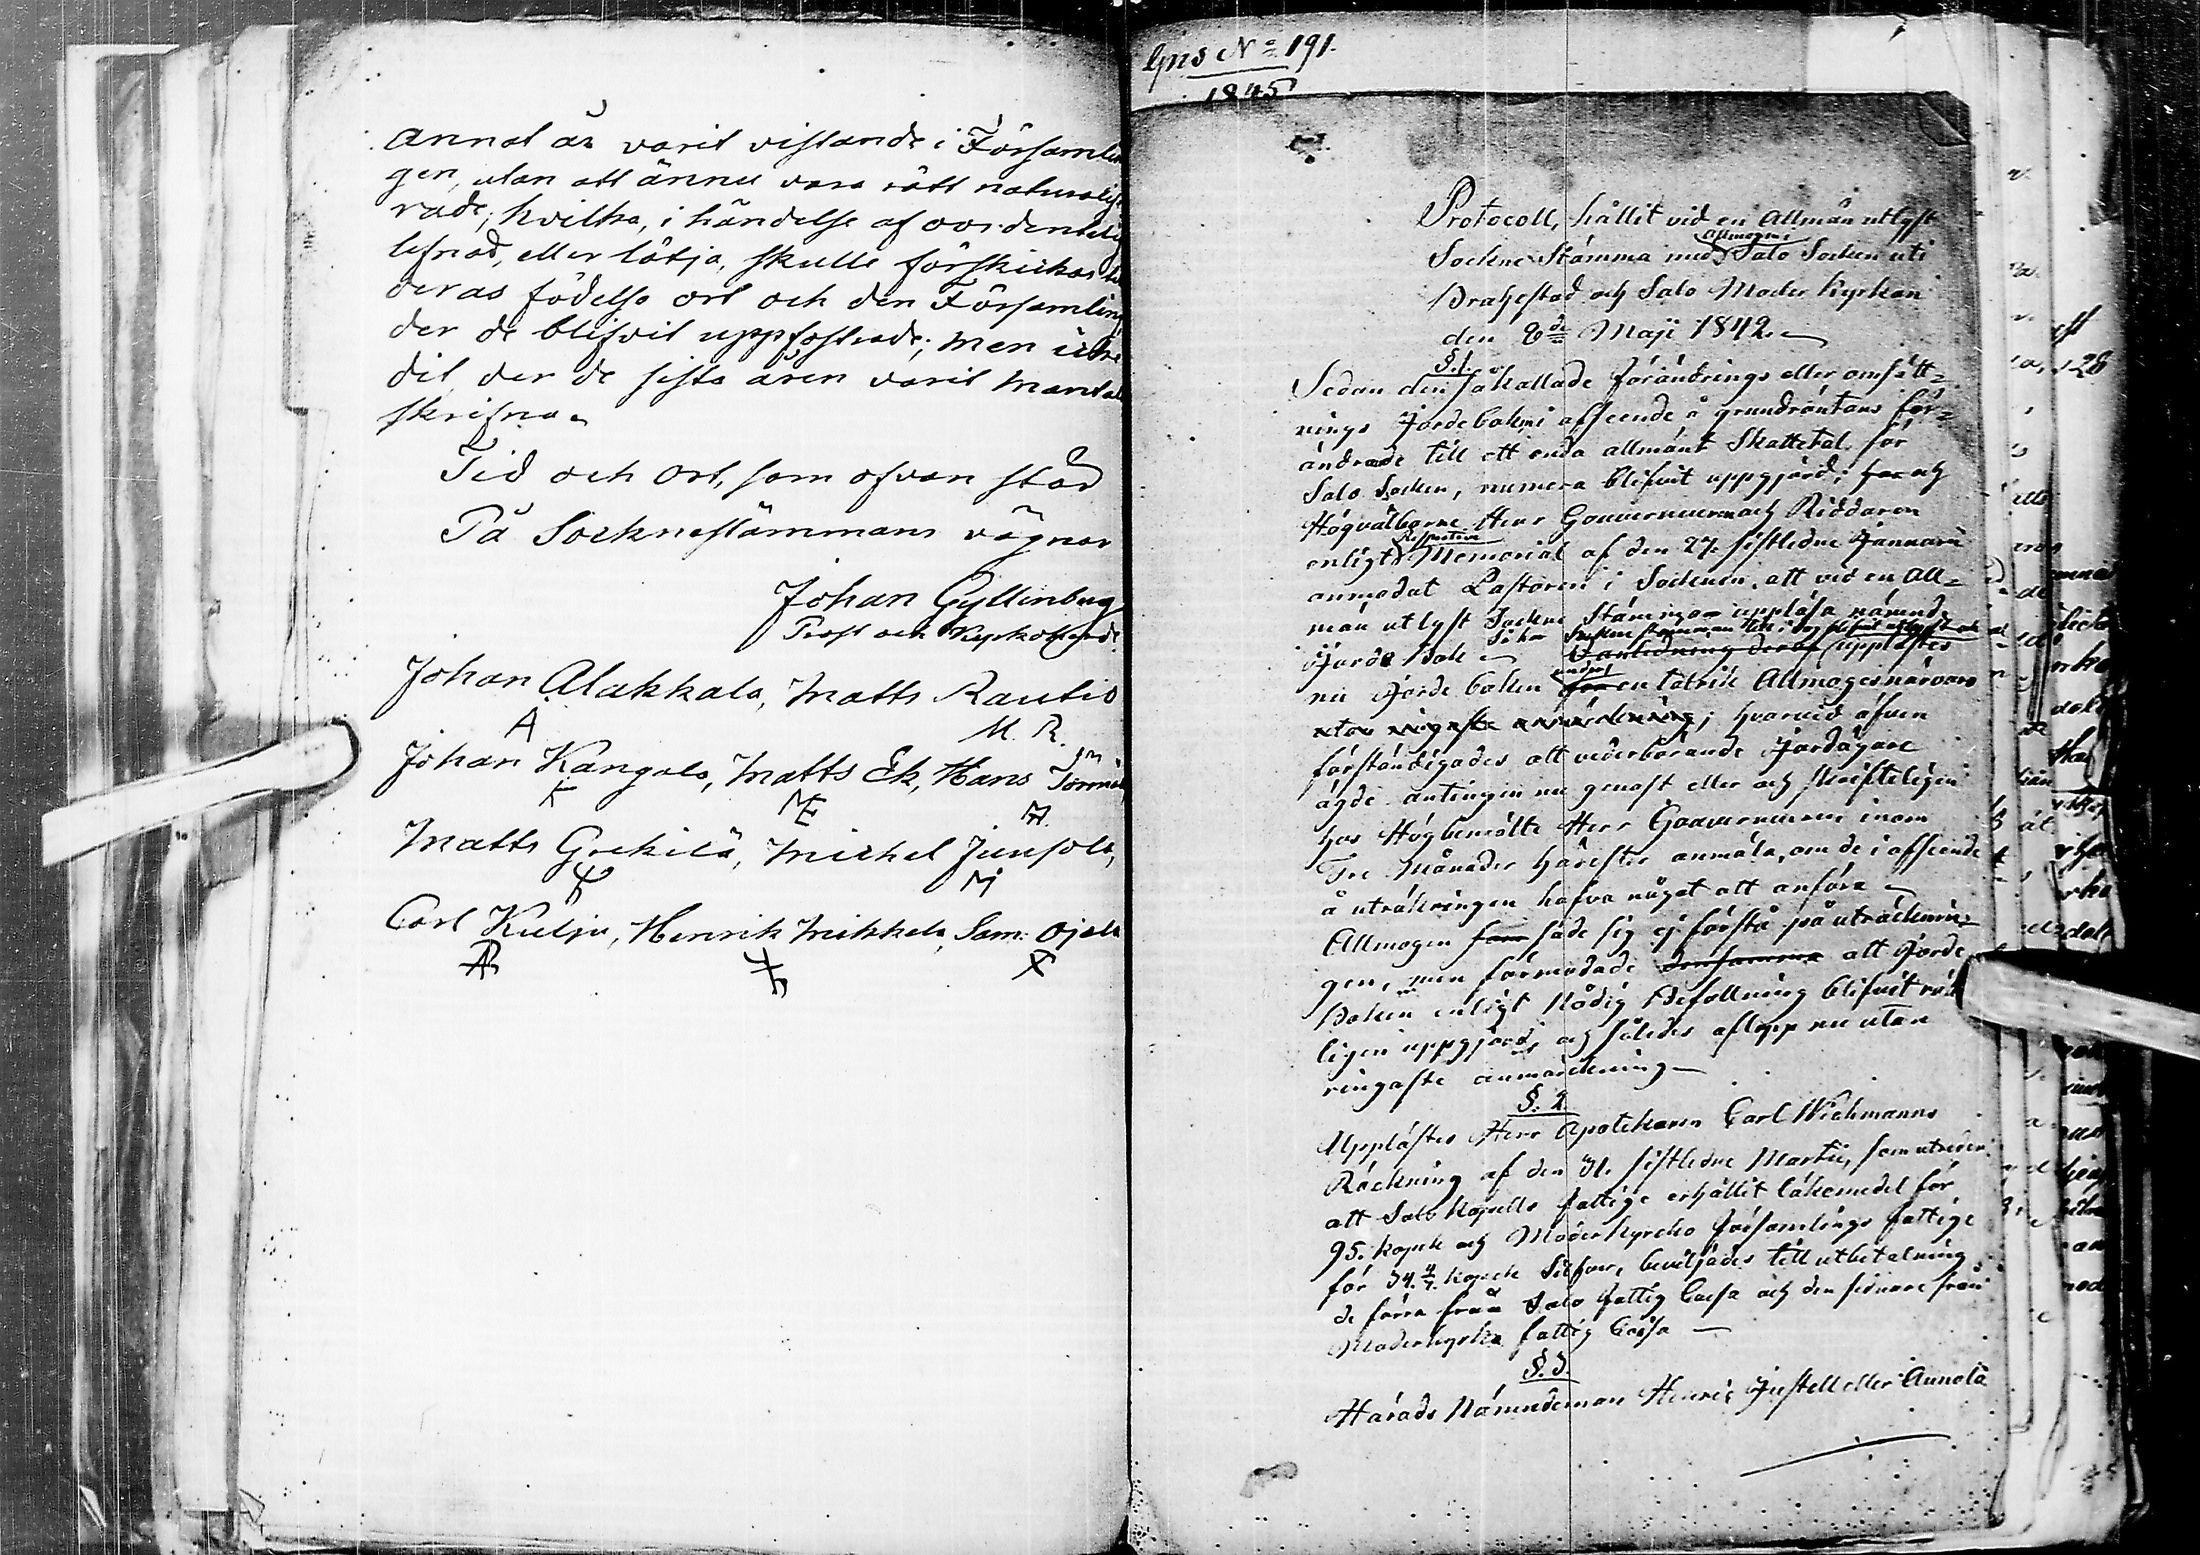 annat år varit vistande i Församlin
gen, utan att ännu vara rätt naturalise
rade; hvilka, i händelse af oordentelig
lefnad, eller lätja, skulle förskickas til
deras födelse ort och den Församling
der de blifvit uppfostrade; men icke
dit, der de sista åren varit mantals
skrifna.
Tid och ort, som ofvan står
På Socknestämmans vägnar
Johan Gyllenberg
Prost och Kyrkoherde.
Johan Alakkala, Matts Rautio
A M. R.
Johan Kangals, Matts Ek, Hans
K ME H.
Matts Grekilä, Michel Junsola,
M
Carl Kulju, Henrik Mikkela, Sam: Ojala
Gns No 191.
1845
Protocoll, hållit vid en Allmän utlyst
Allmogen i
Sockne Stämma med Salo Socken uti
Brahestad och Salo Moder Kyrkan
den 8de Maji 1842.
§. 1.
Sedan den såkallade förändrings eller omsätt-
nings Jordeboken i afseende å grundräntans för-
ändrade till ett enda allmänt Skattetal för
Salo Socken, numera blifvit uppgjord; har och
Högvälborne Herr Gouverneuren och Riddaren
Respective
enligt Memorial af den 27. sistledne Januarii
anmodat Pastoren i Socknen, att vid en All-
män utlyst Sockne Stämma uppläsa nämnde
Jorde Bok. Vid anledning deraf upplästes
nu Jorde boken för en talrik Allmoges närvaro
utan ringaste anmärkning; hvarvid äfven
förständigades att vederbörande Jordägare
ägde antingen nu genast eller och skrifteligen
hos Högbemälte Herr Gouverneuren inom
Tre Månader härefter anmäla, om de i afseende
å uträkningen hafva något att anföra.
Allmogen som sade sig ej förstå på uträcknin-
gen, men förmodade densamma att Jorde
Boken enligt Nådig Befallning blifvit
ligen uppgjord, och således aflopp nu utan
ringaste anmärkning
§. 2
Upplästes Herr Apotekaren Carl Wichmanns
Räckning af den 31. sistledne Martii, som utvisar
att Salo Kapells fattige erhållit läkemedel för
95. kopek och Moderkyrko församlings fattige
för 34 4/7. kopek Silfver, beviljades till utbetalning
de förra från Salo fattig Cassa och den sednare från
Moderkyrko fattig Cassa
§. 3.
Härads Nämndeman Henric Justell eller Annola